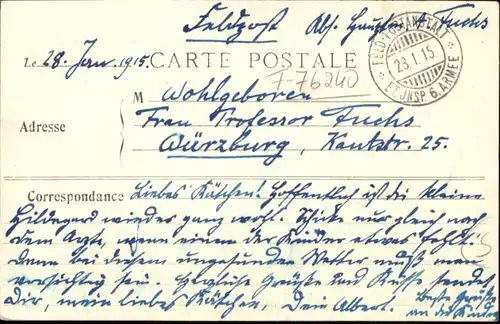 Feldpost Abs. Hauptm. A. Fuchs
Le 28. Jan. 1915. CARTE POSTALE
FELD-POSTANSTALT
28.1.15
ET. JNSP. 6. ARMEE
F-76240
M Wohlgeboren
Adresse Frau Professor Fuchs
Würzburg, Kantstr. 25.
Correspondance Liebes Kätchen! Hoffentlich ist die kleine
Hildegard wieder ganz wohl. Schicke nur gleich nach
dem Arzte, wenn einem der Kinder etwas fehlt.
Denn bei diesem ungesunden Wetter muß man
vorsichtig sein. Herzliche Grüße und Küsse sendet
Dir, mein liebes Kätchen, Dein Albert. Beste Grüße
an die Kinder